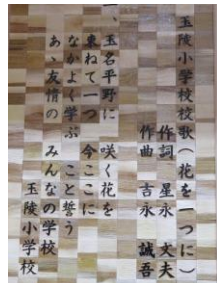 玉陵小学校校歌(花を一つに)
作詞 星永 文夫
作曲 吉永 誠吾
一、玉名平野に 咲く花を
束ねて一つ 今ここに
なかよく学ぶ こと誓う
あゝ友情の みんなの学校
玉陵小学校